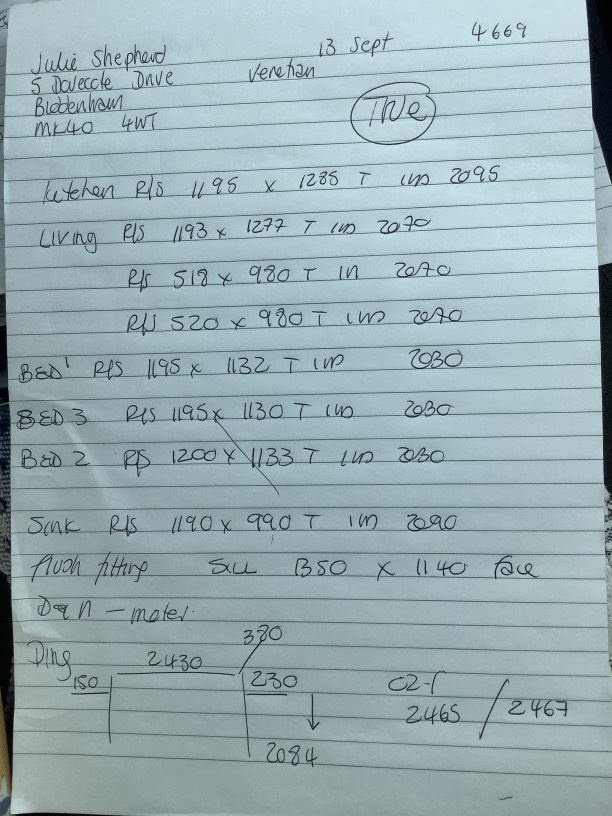 Julie Shepherd 13 Sept 4669
5 Dovecote Drive Venetian
Biddenham
MK40 4WT
Kitchen R/S 1195 x 1285 T in 2095
Living R/S 1193 x 1277 T in 2070
R/S 518 x 980 T in 2070
R/S 520 x 980 T in 2070
BED 1 R/S 1195 x 1132 T in 2030
BED 3 R/S 1195 x 1130 T in 2030
BED 2 R/S 1200 x 1133 T in 2030
Sink R/S 1190 x 990 T in 2090
flush fitting Sill 1350 x 1140 face
330
Ding 2430
150 230
2465 / 2467
2084